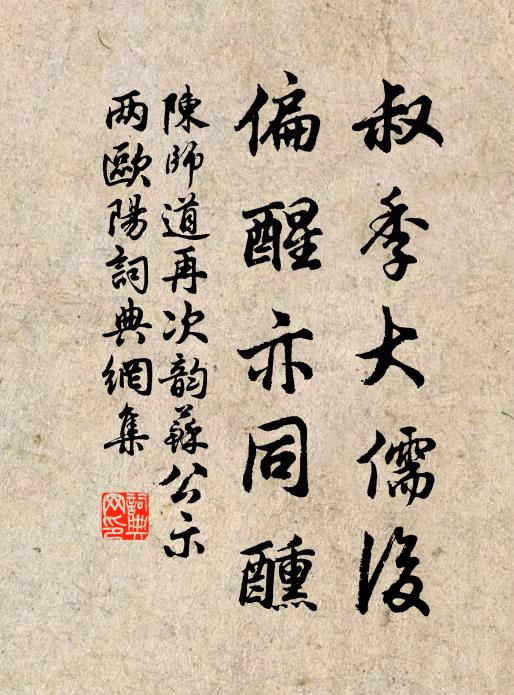 叔季大儒後
偏醒亦同醺
陳師道再次韵蘇公示
两歐陽詞典網集
詞典网印